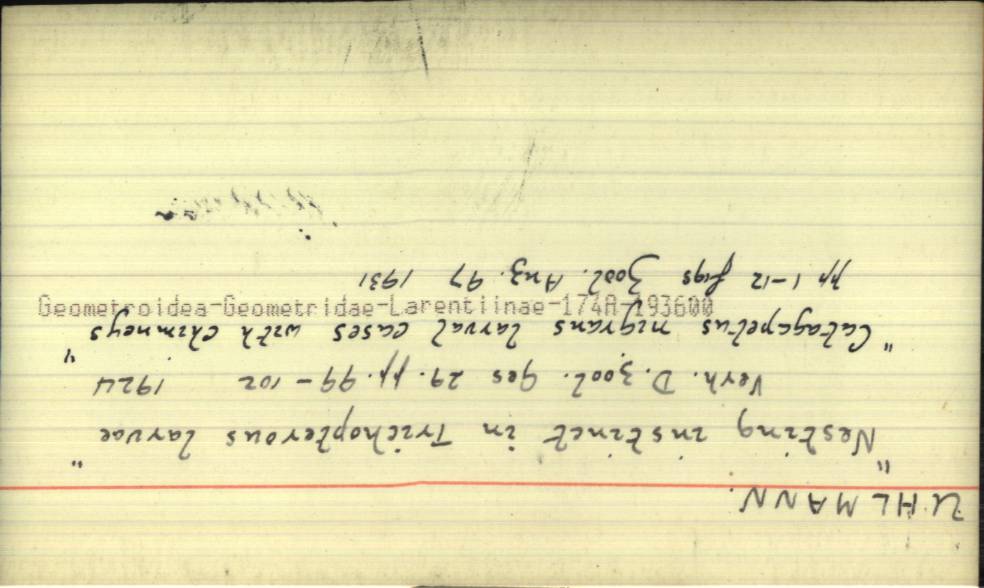 UHLMANN.
"Nesting instinct in Trichopterous larvae"
Verh. D. zool. Ges 29. pp. 99-102 1924
"Catagapetus nigrans larval cases with chimneys"
pp 1-12 figs Zool. Anz. 97 1931
Geometroidea-Geometridae-Larentiinae-174A-193600